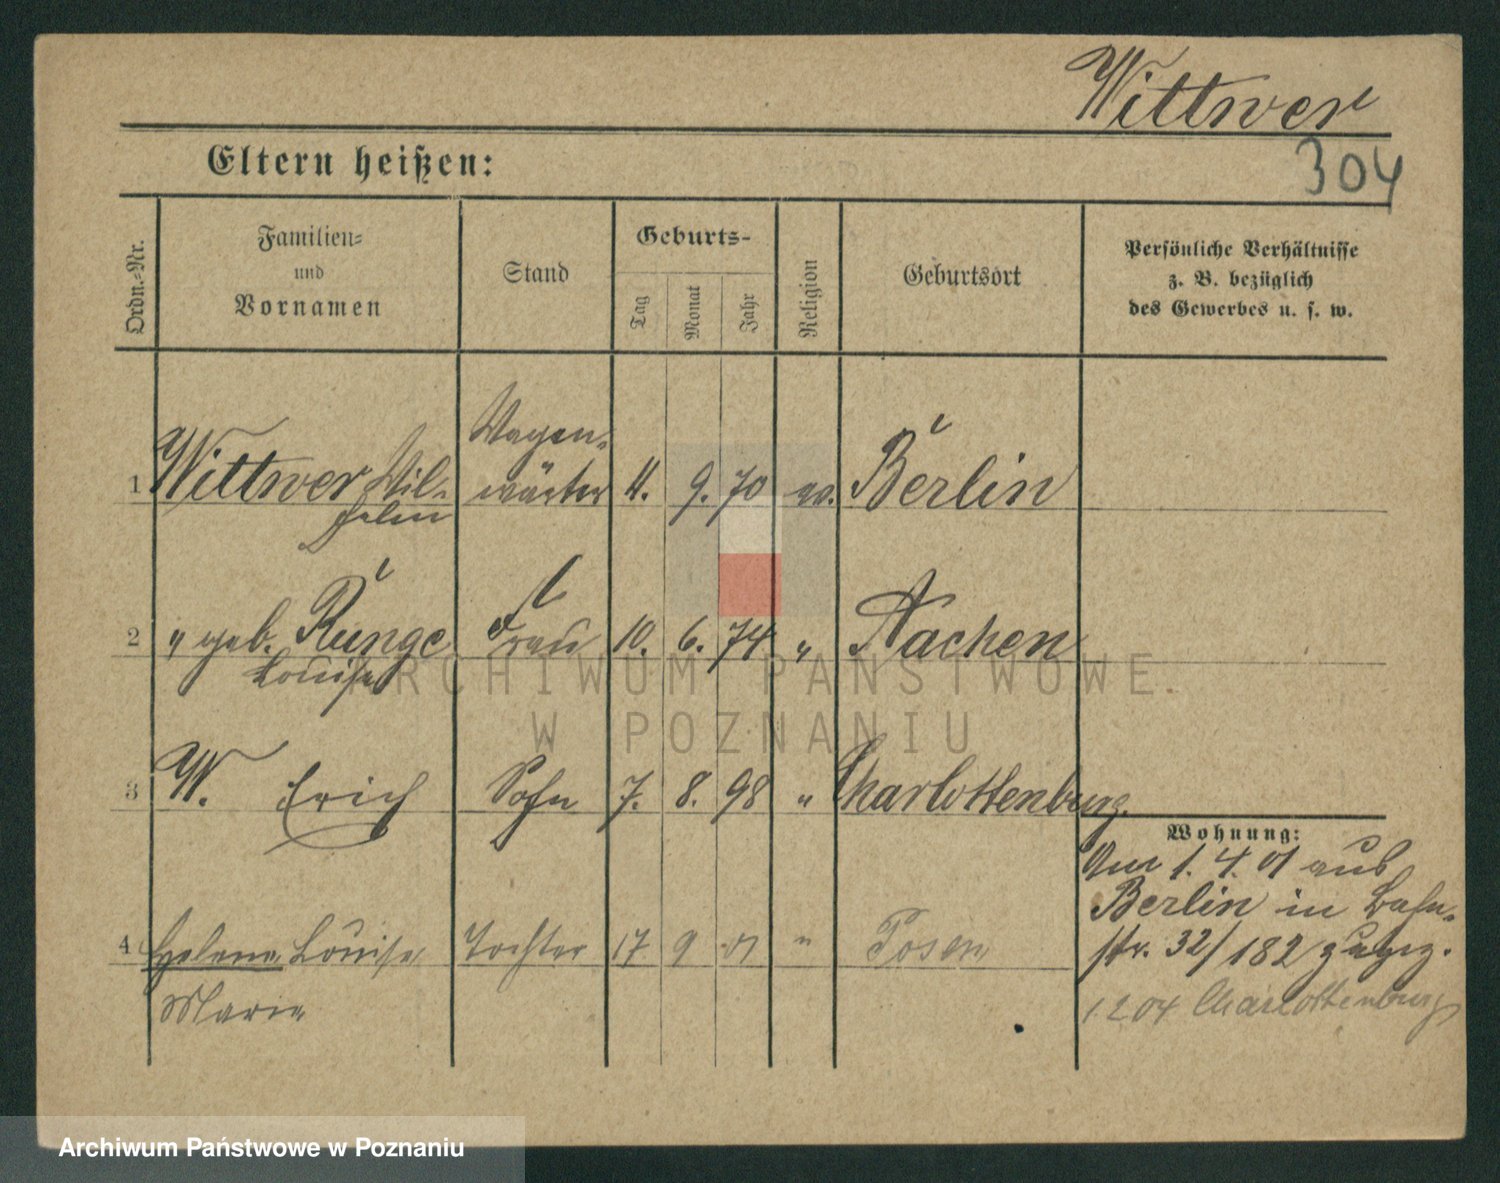 Wittwer
304
Eltern heißen:
Ordn.-Nr.
Familien-
und
Vornamen
Stand
Geburts-
Tag
Monat
Jahr
Religion
Geburtsort
Persönliche Verhältnisse
z. B. bezüglich
des Gewerbes u. s. w.
1 Wittwer Wil-
helm
Wagen-
wärter
9. 70 ev. Berlin
2 " geb. Runge
Louise
Frau 10. 6. 74 " Aachen
3 W. Erich Sohn 7. 8. 98 " Charlottenburg.
Wohnung:
Am 1. 4. 01 aus
Berlin in Bahn-
str. 32/182 zugez.
1 2 04 Charlottenburg
4 Helene Louise Tochter 17 9 01 " Posen
Marie
ARCHIWUM PAŃSTWOWE
W POZNANIU
Archiwum Państwowe w Poznaniu